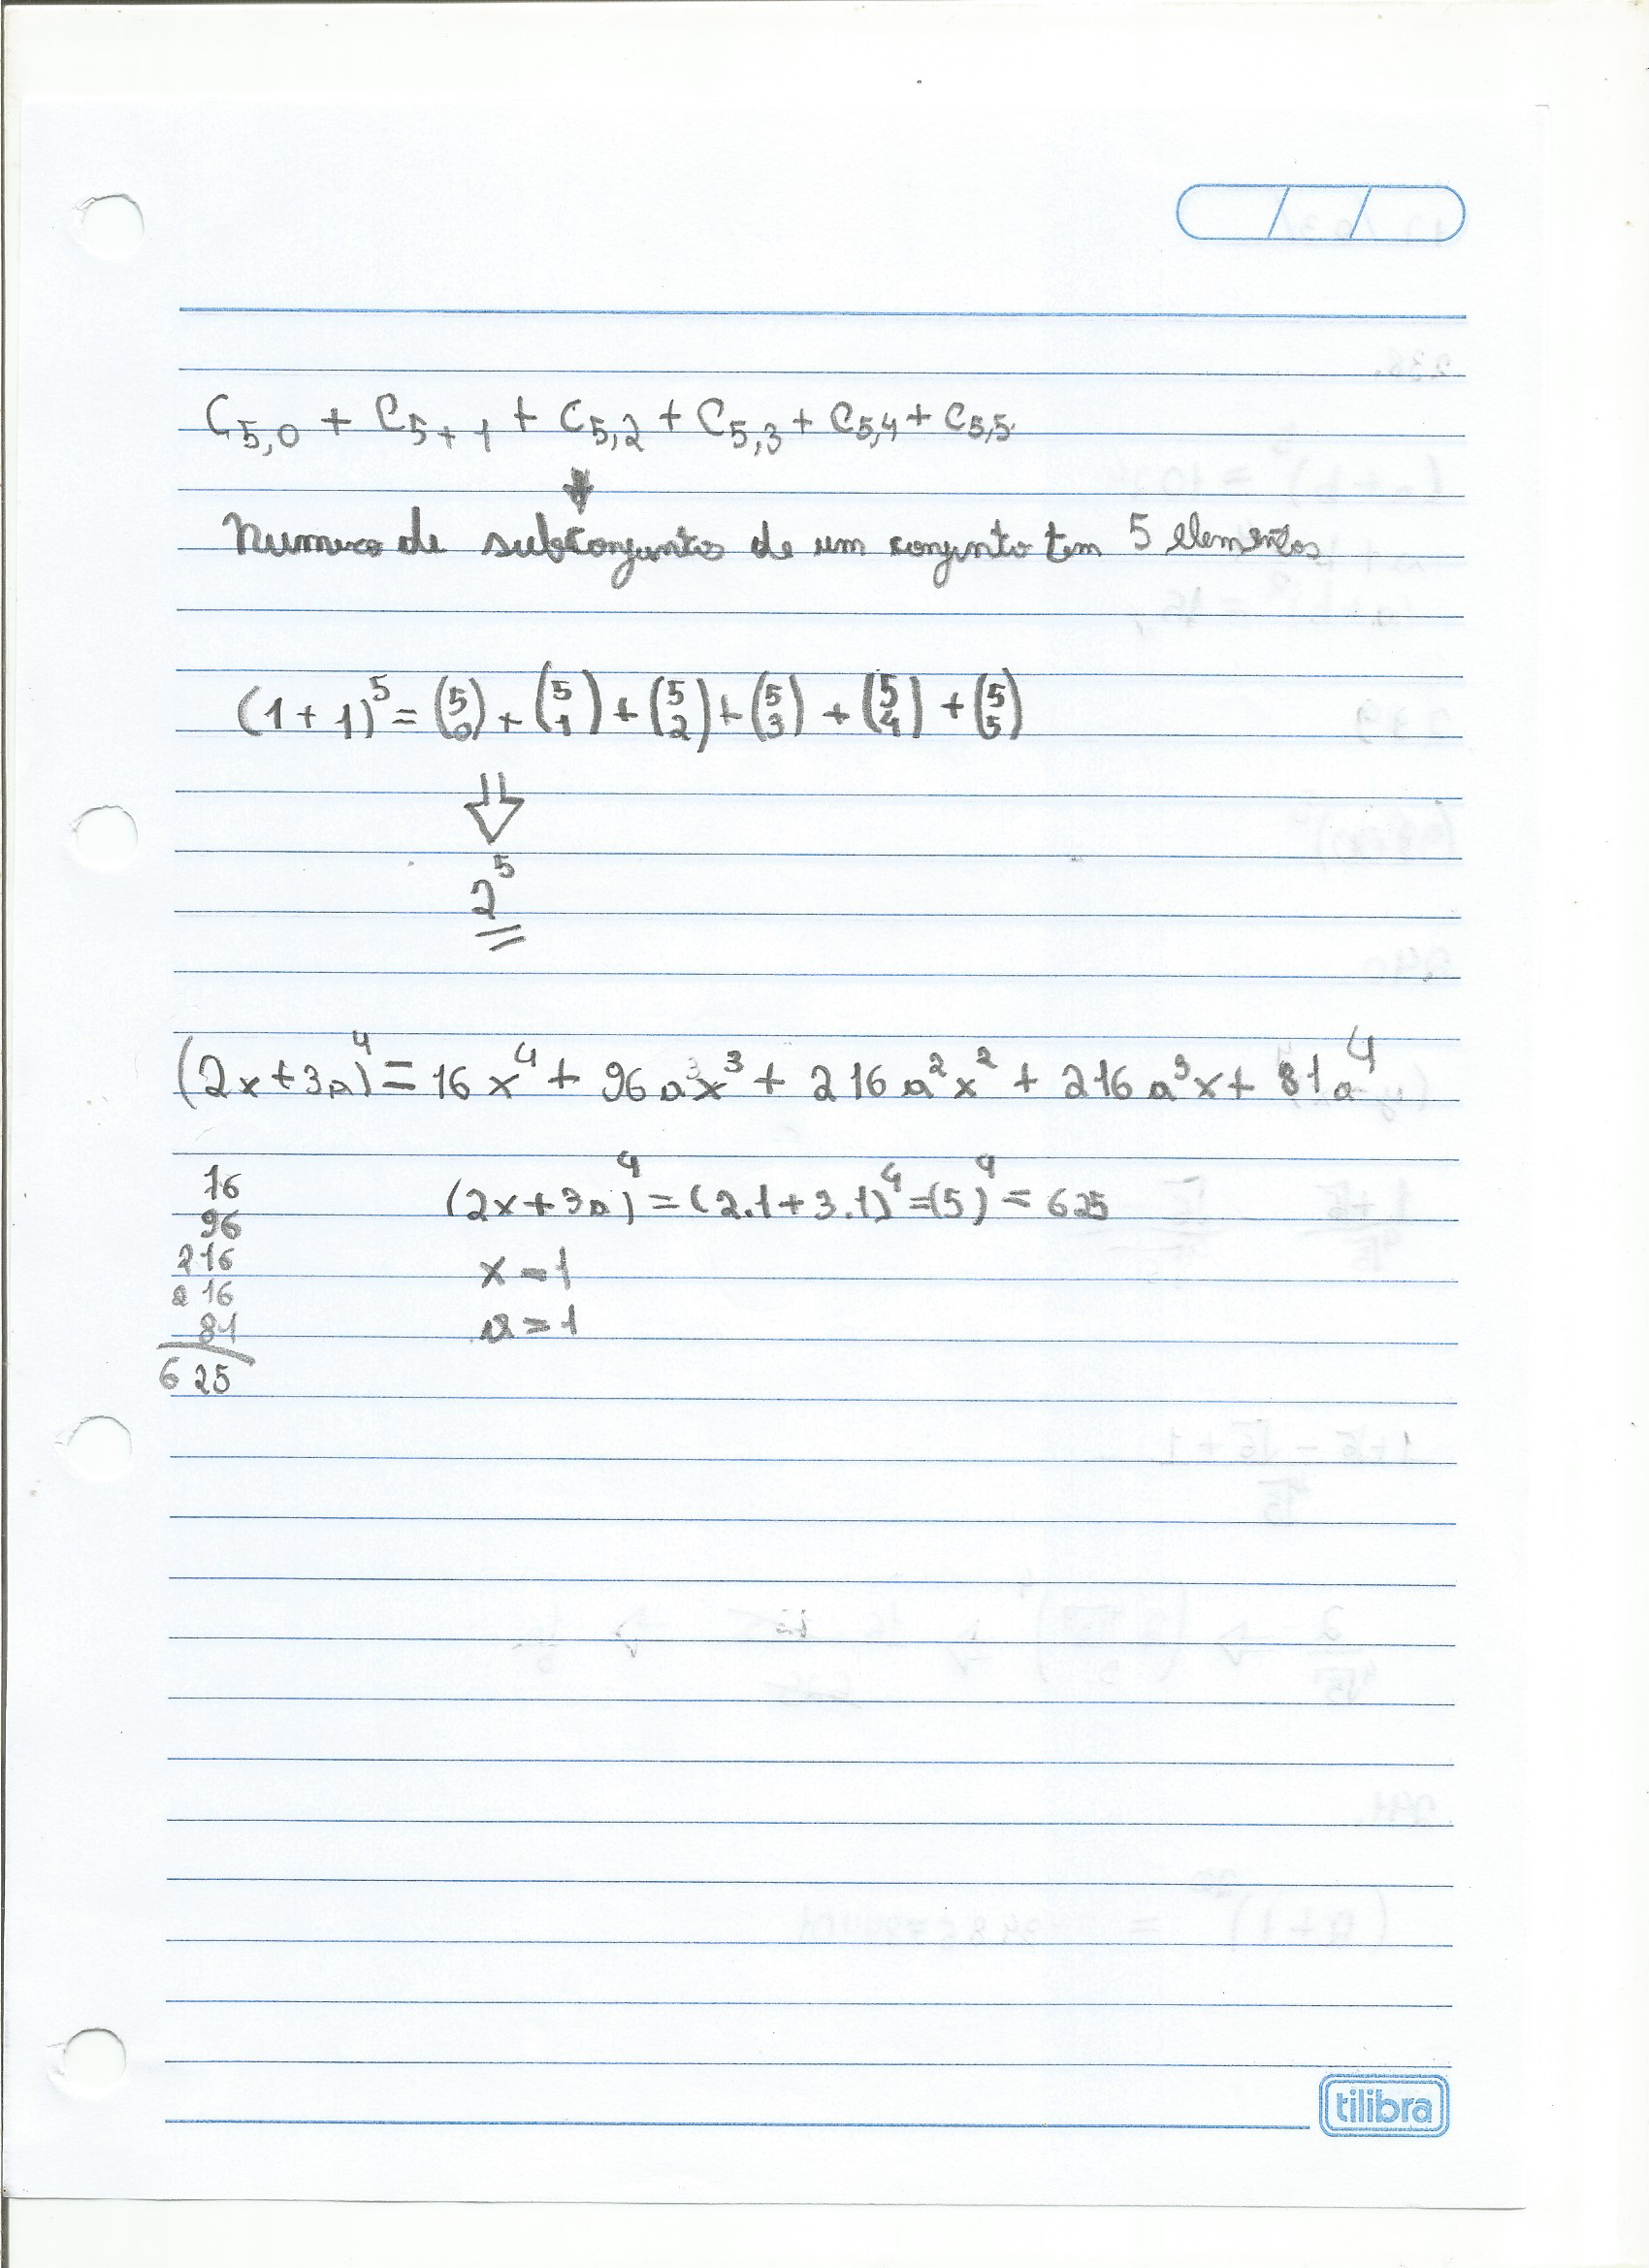 C5,0 + C5+1 + C5,2 + C5,3 + C5,4 + C5,5
Numero de subconjuntos de um conjunto tem 5 elementos
(1+1)^5 = (5 0) + (5 1) + (5 2) + (5 3) + (5 4) + (5 5)
⇓
2^5
(2x+3a)^4 = 16x^4 + 96a^3x^3 + 216a^2x^2 + 216a^3x + 81a^4
16
96
216
216
81
625
(2x+3a)^4 = (2.1+3.1)^4 = (5)^4 = 625
x = 1
a = 1
tilibra